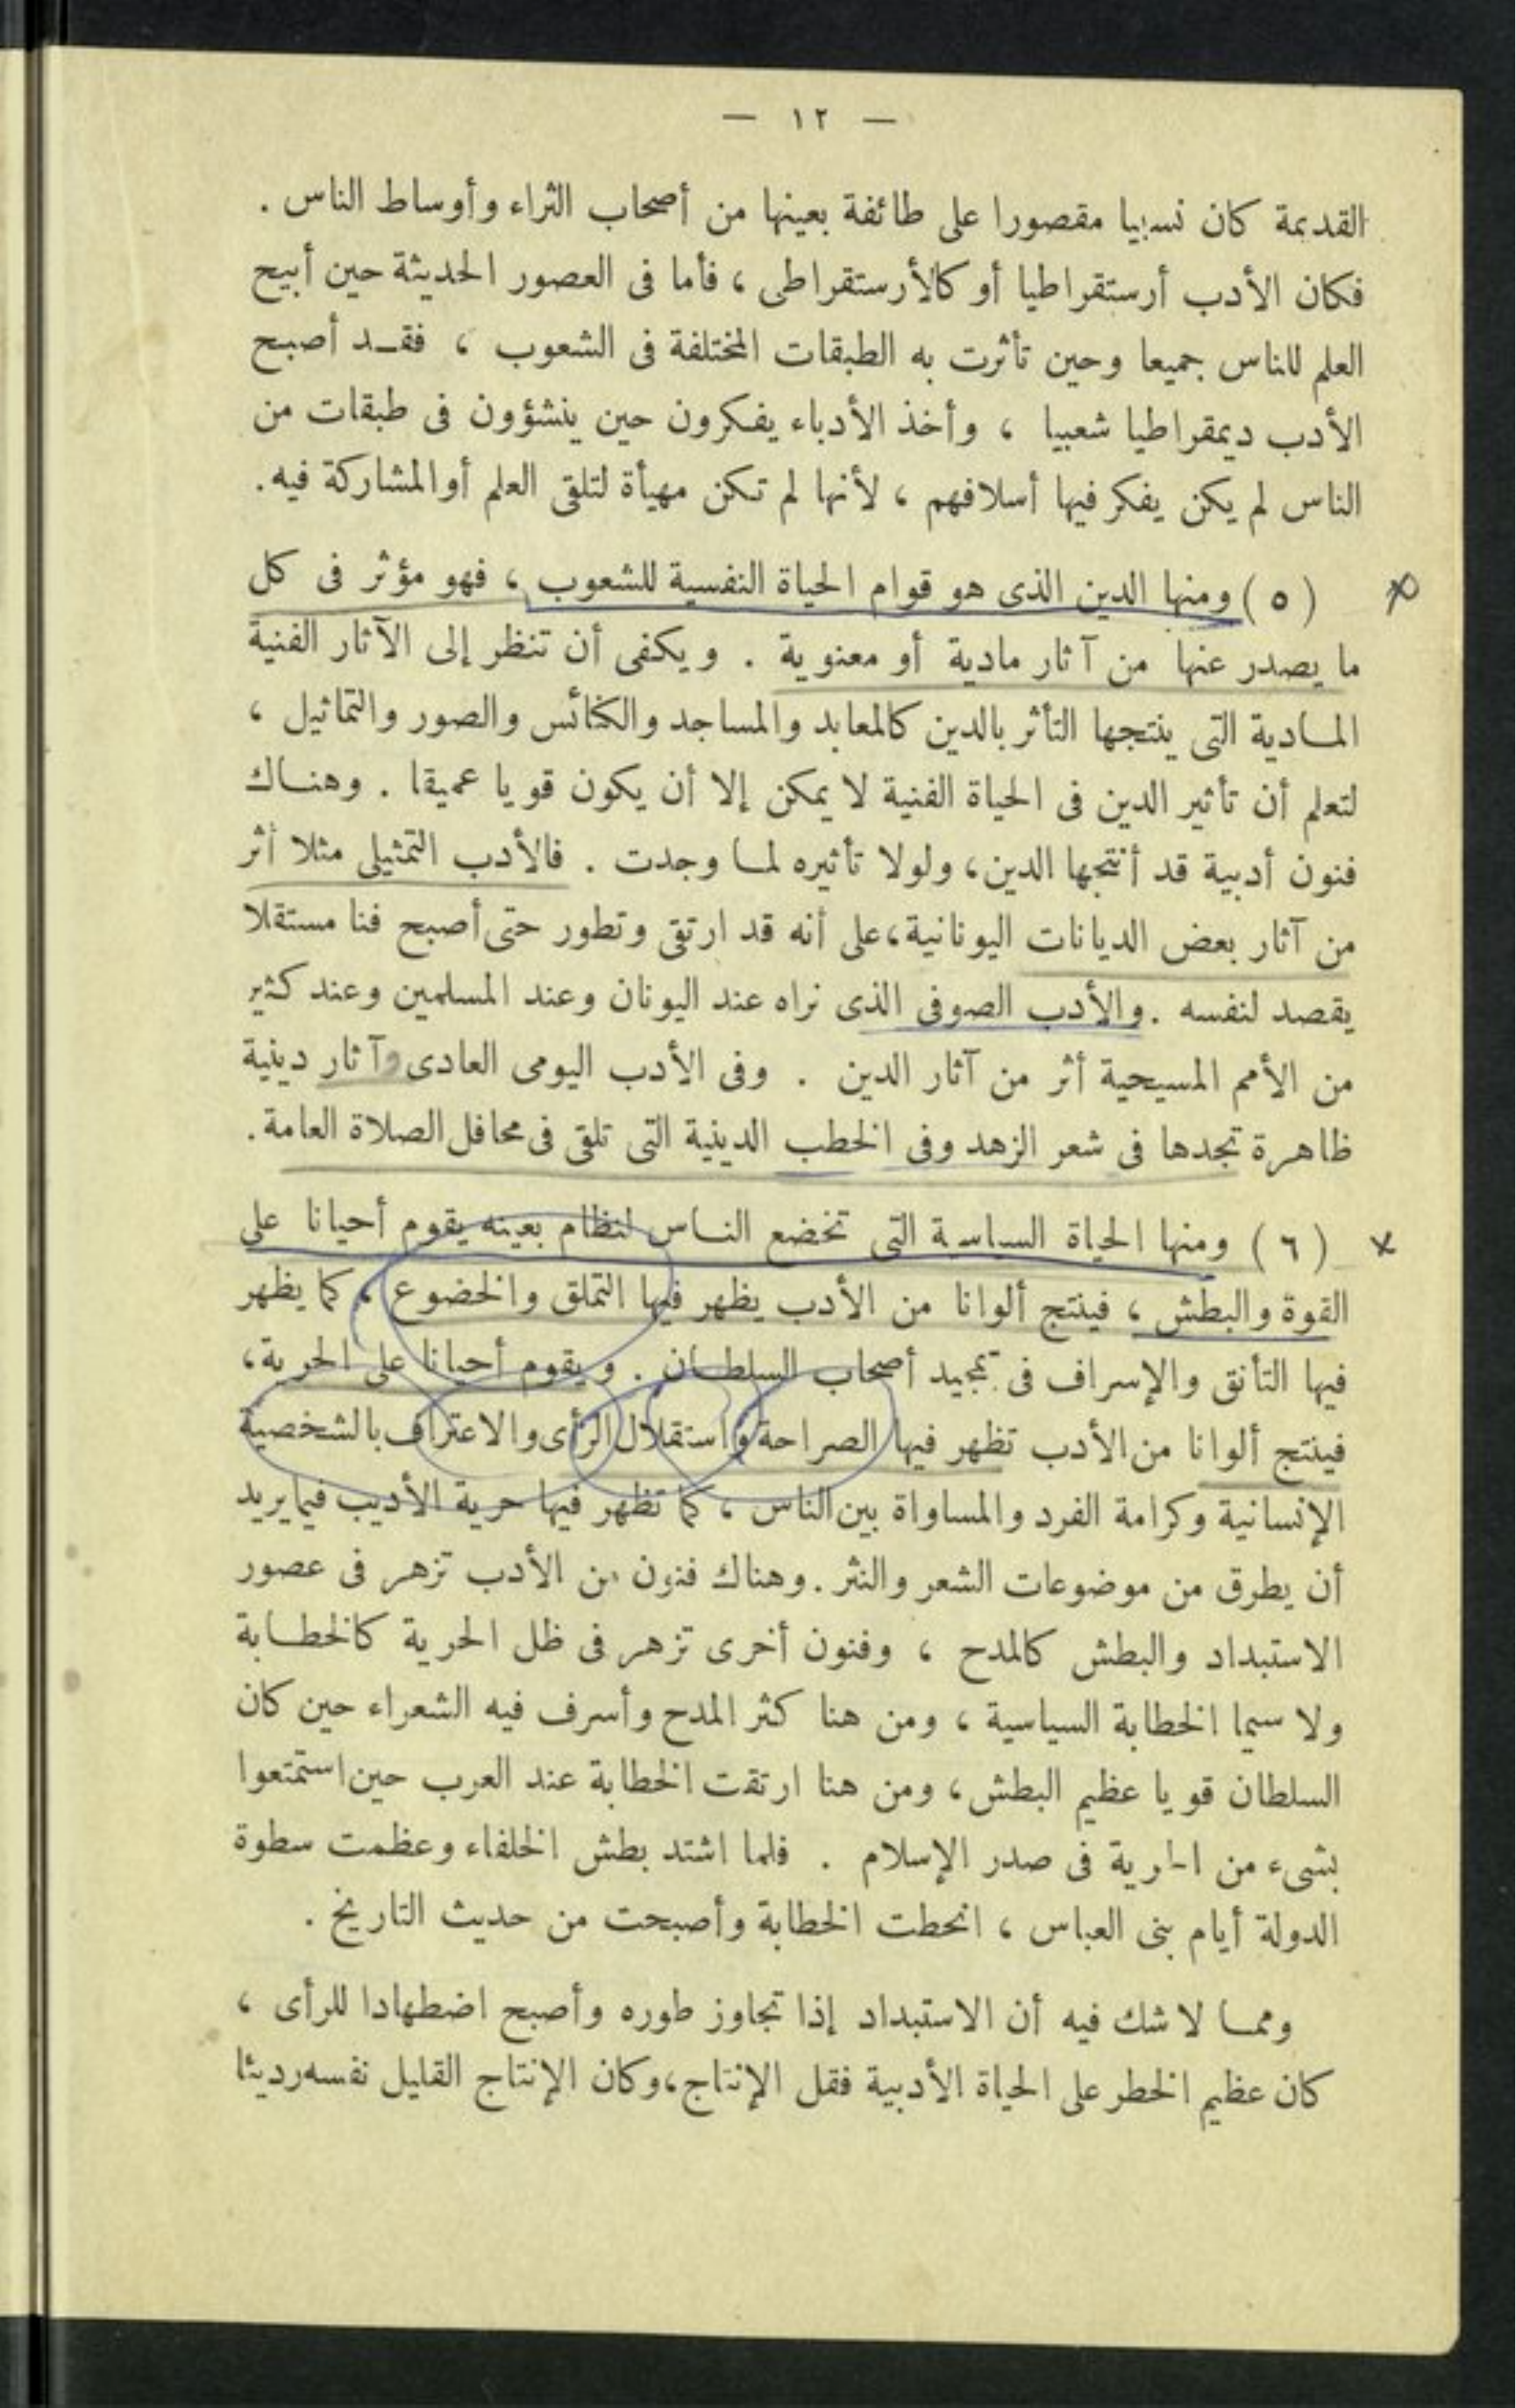 — ١٢ —
القديمة كان نسبيا مقصورا على طائفة بعينها من أصحاب الثراء وأوساط الناس .
فكان الأدب أرستقراطيا أو كالأرستقراطى ، فأما فى العصور الحديثة حين أبيح
العلم للناس جميعا وحين تأثرت به الطبقات المختلفة فى الشعوب ، فقد أصبح
الأدب ديمقراطيا شعبيا ، وأخذ الأدباء يفكرون حين ينشؤون فى طبقات من
الناس لم يكن يفكر فيها أسلافهم ، لأنها لم تكن مهيأة لتلقى العلم أو المشاركة فيه .
(٥) ومنها الدين الذى هو قوام الحياة النفسية للشعوب ، فهو مؤثر فى كل
ما يصدر عنها من آثار مادية أو معنوية . ويكفى أن تنظر إلى الآثار الفنية
المادية التى ينتجها التأثر بالدين كالمعابد والمساجد والكنائس والصور والتماثيل ،
لتعلم أن تأثير الدين فى الحياة الفنية لا يمكن إلا أن يكون قويا عميقا . وهناك
فنون أدبية قد أنتجها الدين ، ولولا تأثيره لما وجدت . فالأدب التمثيلى مثلا أثر
من آثار بعض الديانات اليونانية ، على أنه قد ارتقى وتطور حتى أصبح فنا مستقلا
يقصد لنفسه . والأدب الصوفى الذى نراه عند اليونان وعند المسلمين وعند كثير
من الأمم المسيحية أثر من آثار الدين . وفى الأدب اليومى العادى وآثار دينية
ظاهرة تجدها فى شعر الزهد وفى الخطب الدينية التى تلقى فى محافل الصلاة العامة .
(٦) ومنها الحياة السياسية التى تخضع الناس لنظام بعينه يقوم أحيانا على
القوة والبطش ، فينتج ألوانا من الأدب يظهر فيها التملق والخضوع ، كما يظهر
فيها التأنق والإسراف فى تمجيد أصحاب السلطان . ويقوم أحيانا على الحرية ،
فينتج ألوانا من الأدب تظهر فيها الصراحة واستقلال الرأى والاعتراف بالشخصية
الإنسانية وكرامة الفرد والمساواة بين الناس ، كما تظهر فيها حرية الأديب فيما يريد
أن يطرق من موضوعات الشعر والنثر . وهناك فنون من الأدب تزهر فى عصور
الاستبداد والبطش كالمدح ، وفنون أخرى تزهر فى ظل الحرية كالخطابة
ولا سيما الخطابة السياسية ، ومن هنا كثر المدح وأسرف فيه الشعراء حين كان
السلطان قويا عظيم البطش ، ومن هنا ارتقت الخطابة عند العرب حين استمتعوا
بشىء من الحرية فى صدر الإسلام . فلما اشتد بطش الخلفاء وعظمت سطوة
الدولة أيام بنى العباس ، انحطت الخطابة وأصبحت من حديث التاريخ .
ومما لا شك فيه أن الاستبداد إذا تجاوز طوره وأصبح اضطهادا للرأى ،
كان عظيم الخطر على الحياة الأدبية فقل الإنتاج ، وكان الإنتاج القليل نفسه رديئا